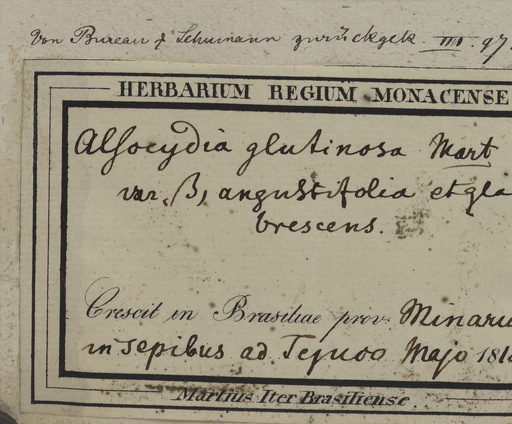 Von Bureau & Schumann zurückgek. III. 97.
HERBARIUM REGIUM MONACENSE
Alsocydia glutinosa Mart
var. β, angustifolia et gla
brescens.
Crescit in Brasiliae prov. Minaru
in sepibus ad Tejuco Majo 181
Martius Iter Brasiliense.